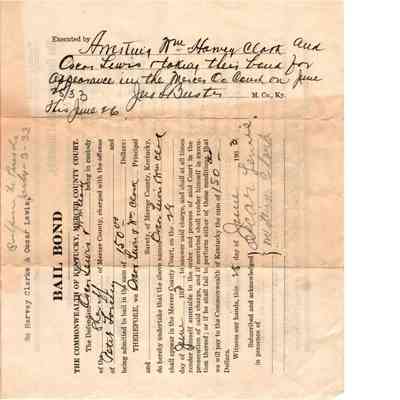 Executed by Arresting Wm Harvey Clark and
Oscar Lewis & taking their bond for
appearance in the Mercer Co Court on June
M. Co., Ky.
This June 26
BAIL BOND
THE COMMONWEALTH OF KENTUCKY, MERCER COUNTY COURT.
The Defendant Oscar Lewis & being in custody
of Mercer County, charged with the offense
of and
being admitted to bail in the sum of $150.00 Dollars:
THEREFORE, we Oscar Lewis & Wm Clark Principal
and Surety, of Mercer County, Kentucky,
do hereby undertake that the above named Oscar Lewis Wm Clark
shall appear in the Mercer County Court, on the
day of June 193 , to answer said charge, and shall at all times
render himself amenable to the order and process of said Court in the
prosecution of said charge, and if convicted shall render himself in execu-
tion thereof; or if he shall fail to perform either of these conditions, that
we will pay to the Commonwealth of Kentucky the sum of $150
Dollars.
Witness our hands, this day of June 193
Subscribed and acknowledged
in presence of
Oscar Lewis
Clark
So Harvey Clark & Oscar Lewis